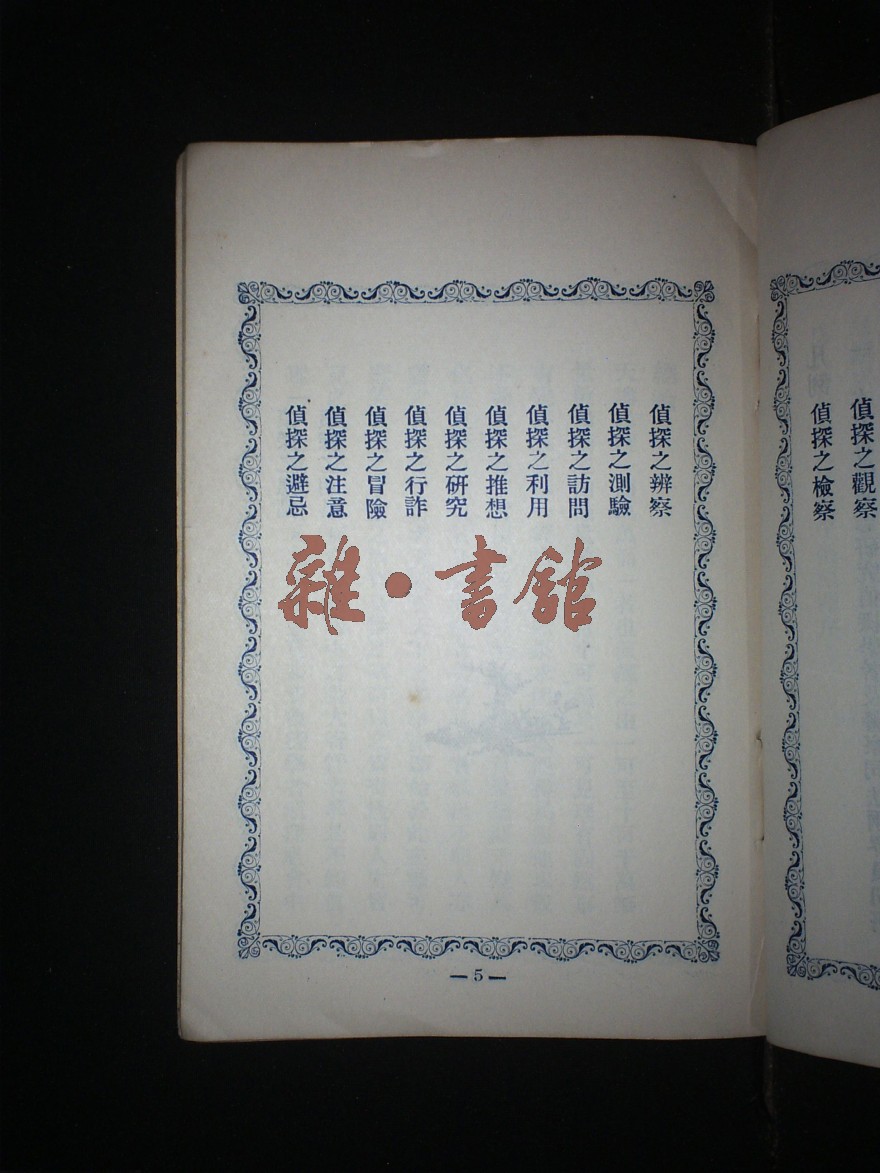 偵探之觀察
偵探之檢察
偵探之辨察
偵探之測驗
偵探之訪問
偵探之利用
偵探之推想
偵探之研究
偵探之行詐
偵探之冒險
偵探之注意
偵探之避忌
雜·書館
—5—